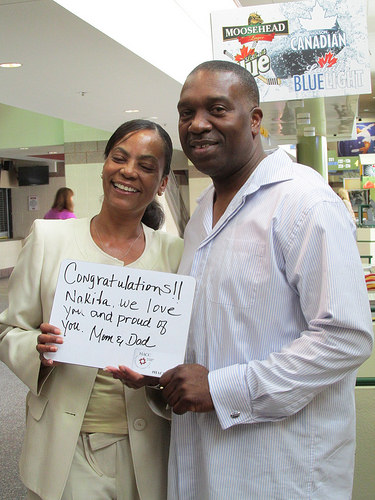 MOOSEHEAD
CANADIAN
BLUE LIGHT
Congratulations!!
Nakita, we love
you and proud of
you. Mom & Dad